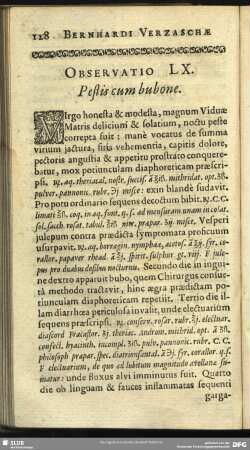 118 BERNHARDI VERZASCHÆ
OBSERVATIO LX.
Pestis cum bubone.
VIrgo honesta & modesta, magnum Viduæ
Matris delicium & solatium, noctu peste
correpta fuit; manè vocatus de summa
virium jactura, siti vehementia, capitis dolore,
pectoris angustia & appetitu prostrato conquere-
batur, mox potiunculam diaphoreticam præscri-
psi. ℞. aq. theriacal. nostr. succif.
pulver. pannonic. rubr. misce: exin blandè sudavit.
Pro potu ordinario sequens decoctum bibit. ℞. C. C.
limati coq. in aq. font. q. s. ad mensuram unam
sol. sacch. rosat. tabul. misce. Vesperi
julepum contra prædicta symptomata proficuum
usurpavit. ℞. aq. borragin. nymphææ, acetos.
papaver rhead. spirit. sulphur. gt. viij. F. jule-
pus pro duabus dosibus nocturnis. Secundo die in ingui-
ne dextro apparuit bubo, quam Chirurgus consue-
tâ methodo tractavit, hinc ægra prædictam po-
tiunculam diaphoreticam repetiit. Tertio die il-
lam diarrhœa periculosa invasit, unde electuarium
sequens præscripsi. ℞. conserv. rosar. rubr. electuar.
diascord Fracastor. theriac. Androm. mithrid. opt.
confect. hyacinth. incompl. pulv. pannonic. rubr. C. C.
philosoph præpar. spec. diatrionsantal. syr. corallor. q. s.
F electuarium, de quo ad lubitum magnitudo avellanæ su-
matur: unde fluxus alvi imminutus fuit. Quarto
die ob linguam & fauces inflammatas sequenti
garga-